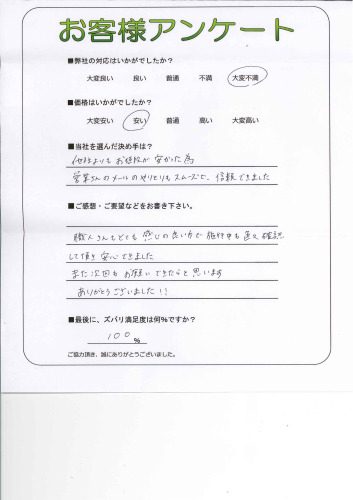 お客様アンケート
■弊社の対応はいかがでしたか?
大変良い 良い 普通 不満 大変不満
■価格はいかがでしたか?
大変安い 安い 普通 高い 大変高い
■当社を選んだ決め手は?
他社よりもお値段が安かった為
営業さんのメールのやりとりもスムーズで、信頼できました
■ご感想・ご要望などをお書き下さい。
職人さんもとても感じの良い方で施工中も 確認
して頂き安心できました
また次回もお願いできたらと思います
ありがとうございました!!
■最後に、ズバリ満足度は何%ですか?
100%
ご協力頂き、誠にありがとうございました。